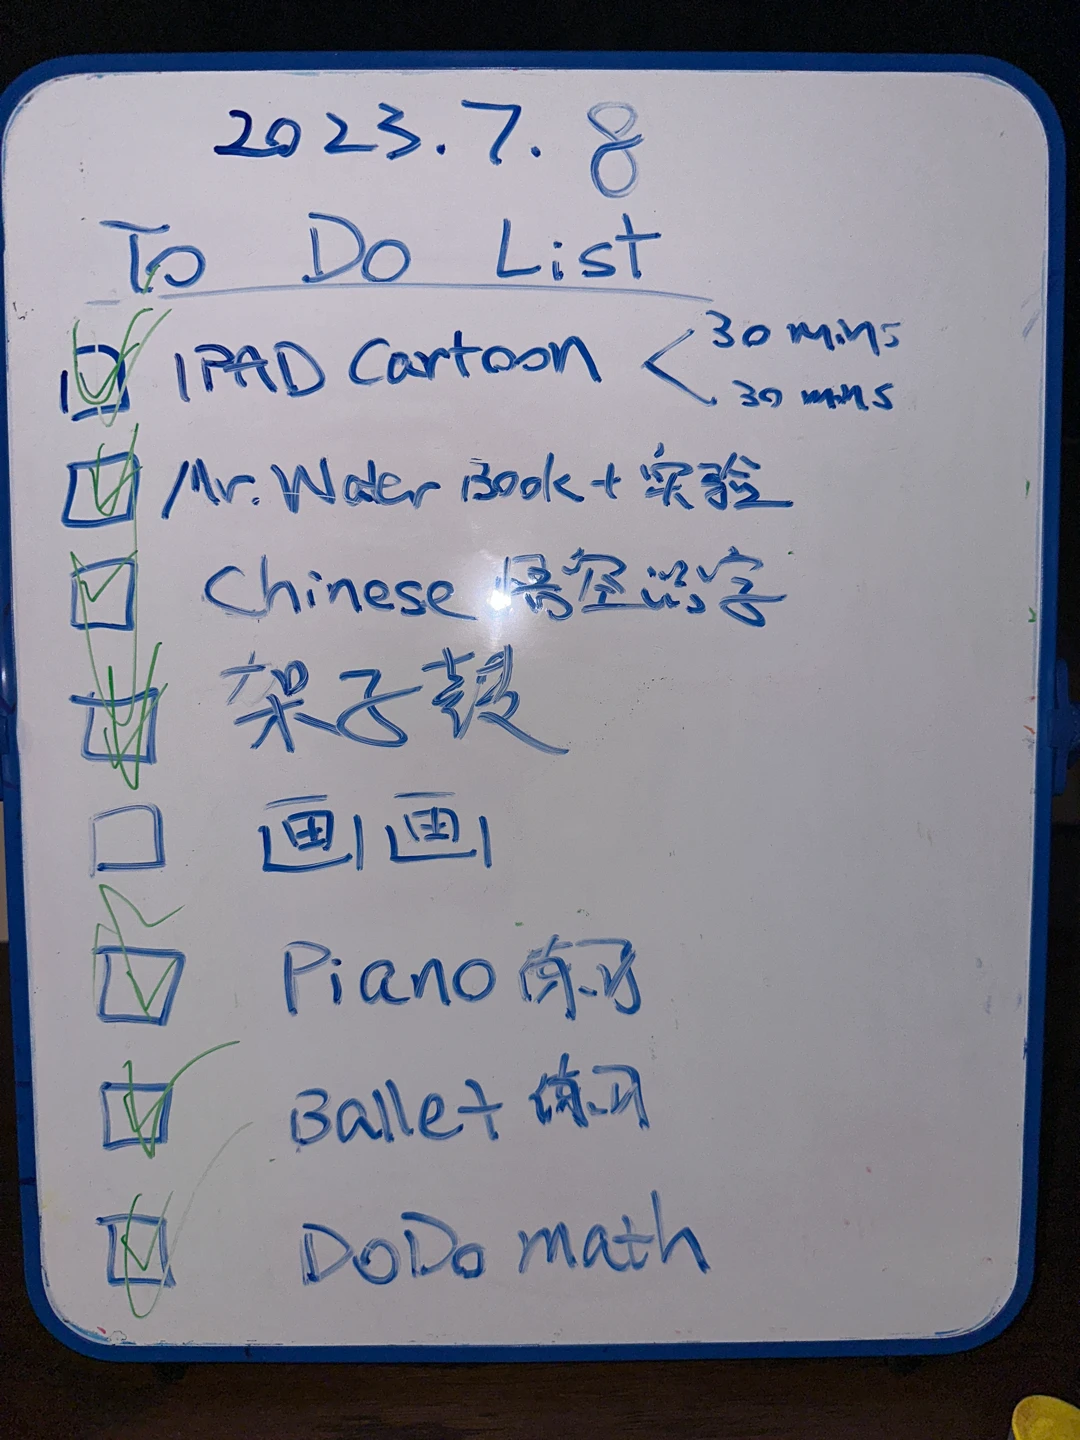 2023.7.8
To Do List
IPAD Cartoon < 30 mins
30 mins
Mr. Water Book + 实验
Chinese 悟空识字
架子鼓
画画
Piano 练习
Ballet 练习
DoDo math